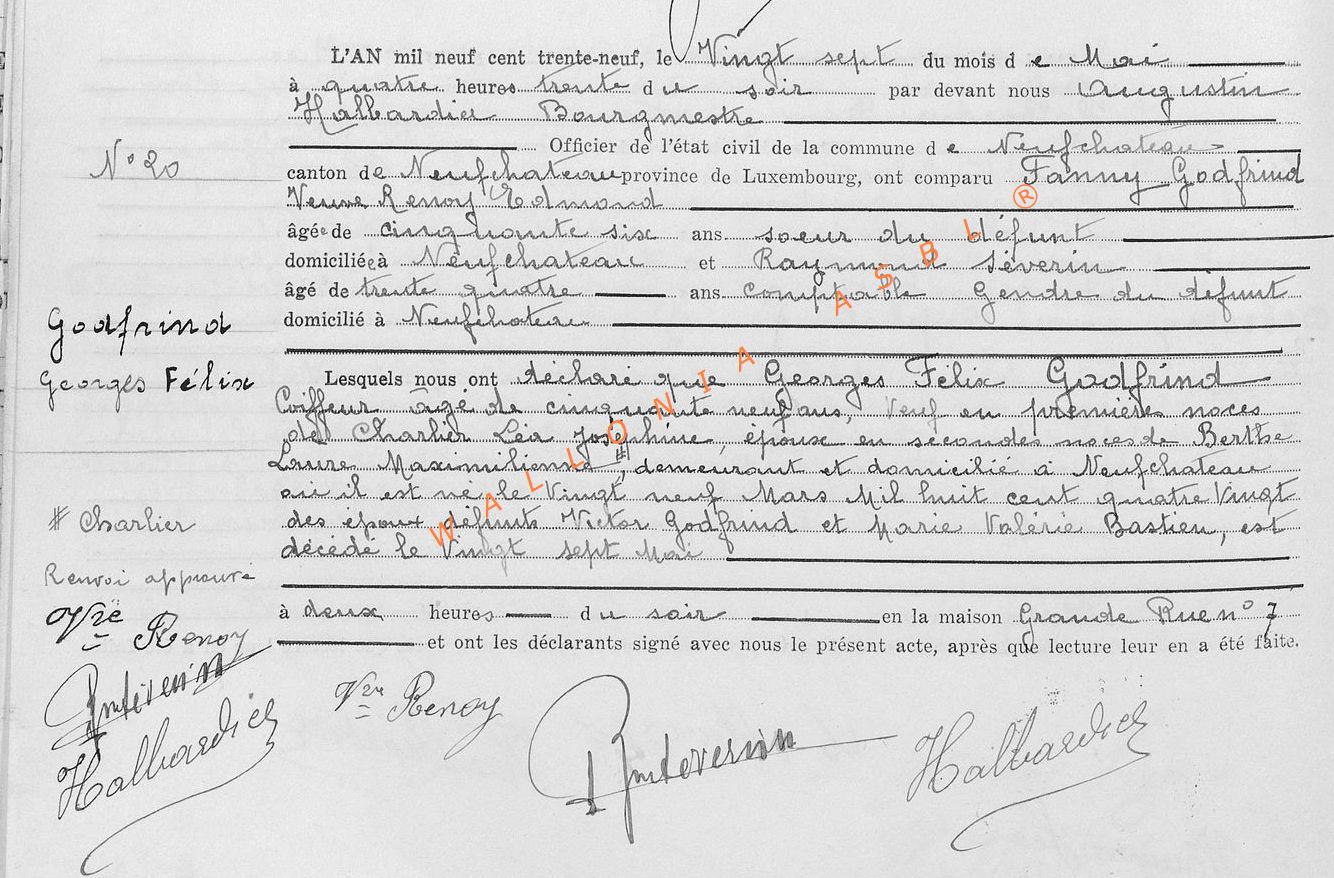 L'AN mil neuf cent trente-neuf, le Vingt sept du mois de Mai
à quatre heures trente du soir par devant nous Augustin
Halbardier Bourgmestre
Officier de l'état civil de la commune de Neufchateau
N° 20
canton de Neufchateau province de Luxembourg, ont comparu Fanny Godfrind
Veuve Renoy Edmond
âgée de cinquante six ans soeur du défunt
domiciliée à Neufchateau et Raymond Séverin
âgé de trente quatre ans comptable Gendre du défunt
domicilié à Neufchateau
Godfrind
Georges Félix
Lesquels nous ont déclaré que Georges Félix Godfrind
Coiffeur âgé de cinquante neuf ans, Veuf en premières noces
de Charlier Léa Joséphine, époux en secondes noces de Berthe
Laure Maximilienne #, demeurant et domicilié à Neufchateau
où il est né le Vingt neuf Mars Mil huit cent quatre Vingt
des époux défunts Victor Godfrind et Marie Valérie Bastien, est
décédé le Vingt sept Mai
# Charlier
Renvoi approuvé
Vve Renoy
Halbardier
à deux heures du soir en la maison Grande Rue n° 7
et ont les déclarants signé avec nous le présent acte, après que lecture leur en a été faite.
Vve Renoy
Halbardier
WALLONIA ASBL ®